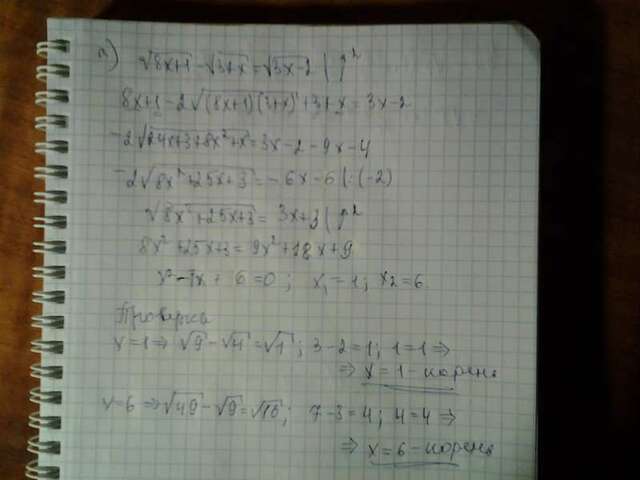 а) √(8x+1) - √(3+x) = √(3x-2) | ^2
8x+1-2√((8x+1)(3+x))+3+x=3x-2
-2√(24x+3+8x²+x)=3x-2-9x-4
-2√(8x²+25x+3)=-6x-6 |:(-2)
√(8x²+25x+3)=3x+3 | ^2
8x²+25x+3=9x²+18x+9
x²-7x+6=0; x₁=1; x₂=6
Проверка
x=1 ⇒ √9-√4=√1; 3-2=1; 1=1 ⇒
⇒ x=1 - корень
x=6 ⇒ √49-√9=√16; 7-3=4; 4=4 ⇒
⇒ x=6 - корень